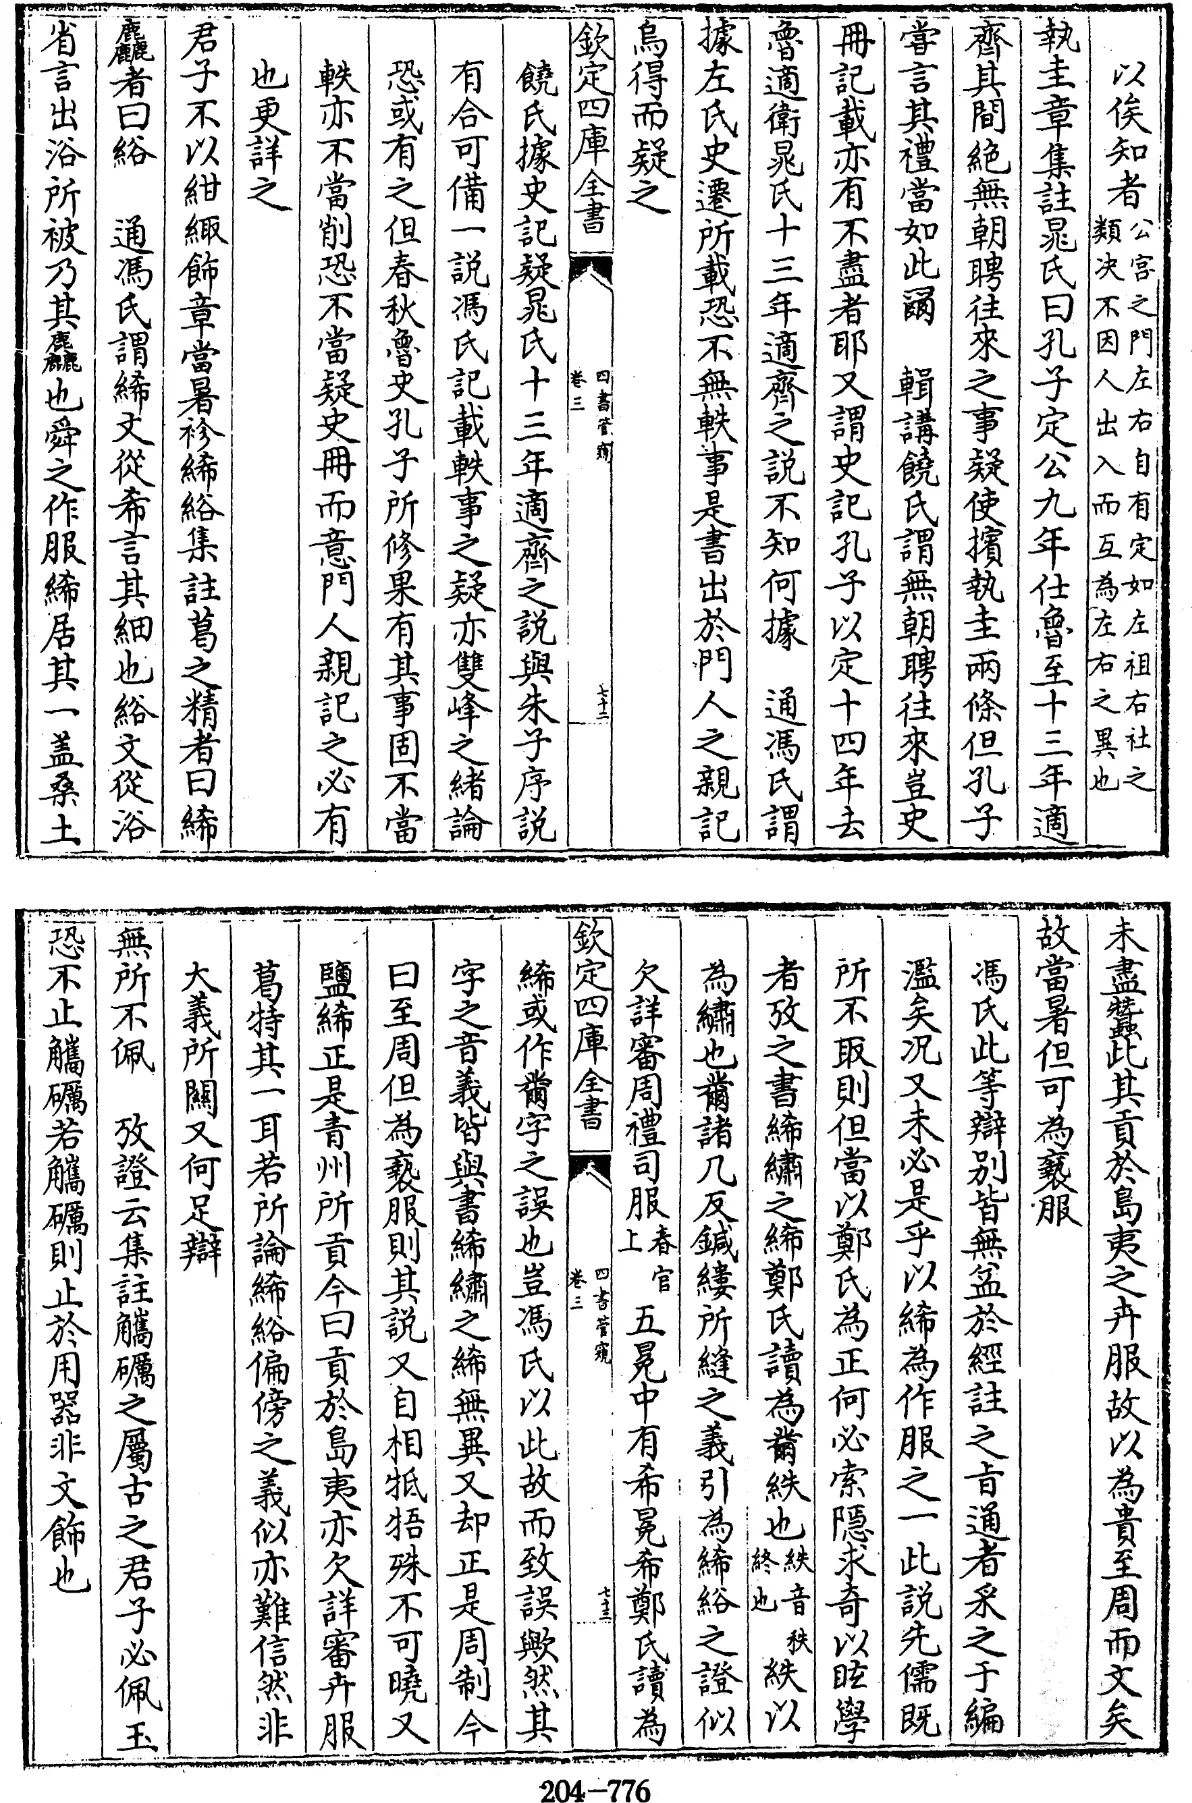 以俟知者公宮之門左右自有定如左祖右社之
類决不因人出入而互為左右之異也
執圭章集註晁氏曰孔子定公九年仕魯至十三年適
齊其間絶無朝聘往來之事疑使擯執圭兩條但孔子
嘗言其禮當如此爾　輯講饒氏謂無朝聘往來豈史
冊記載亦有不盡者耶又謂史記孔子以定十四年去
魯適衛晁氏十三年適齊之說不知何據　通馮氏謂
據左氏史遷所載恐不無軼事是書出於門人之親記
烏得而疑之
欽定四庫全書
四書管窺
卷三
七十二
饒氏據史記疑晁氏十三年適齊之說與朱子序說
有合可備一說馮氏記載軼事之疑亦雙峰之緒論
恐或有之但春秋魯史孔子所修果有其事固不當
軼亦不當削恐不當疑史冊而意門人親記之必有
也更詳之
君子不以紺緅飾章當暑袗絺綌集註葛之精者曰絺
麤者曰綌　通馮氏謂絺文從希言其細也綌文從浴
省言出浴所被乃其麤也舜之作服絺居其一盖桑土
未盡蠶此其貢於島夷之卉服故以為貴至周而文矣
故當暑但可為褻服
馮氏此等辯别皆無益於經註之旨通者采之于編
濫矣况又未必是乎以絺為作服之一此說先儒既
所不取則但當以鄭氏為正何必索隱求奇以眩學
者攷之書絺繡之絺鄭氏讀為黹紩也紩音秩
終也紩以
為繡也黹諸几反鍼縷所縫之義引為絺綌之證似
欠詳審周禮司服春官
上五冕中有希冕希鄭氏讀為
欽定四庫全書
四書管窺
卷三
七十三
絺或作黹字之誤也豈馮氏以此故而致誤歟然其
字之音義皆與書絺繡之絺無異又却正是周制今
曰至周但為褻服則其說又自相牴牾殊不可曉又
鹽絺正是青州所貢今曰貢於島夷亦欠詳審卉服
葛特其一耳若所論絺綌偏傍之義似亦難信然非
大義所關又何足辯
無所不佩　攷證云集註觿礪之屬古之君子必佩玉
恐不止觿礪若觿礪則止於用器非文飾也
204-776